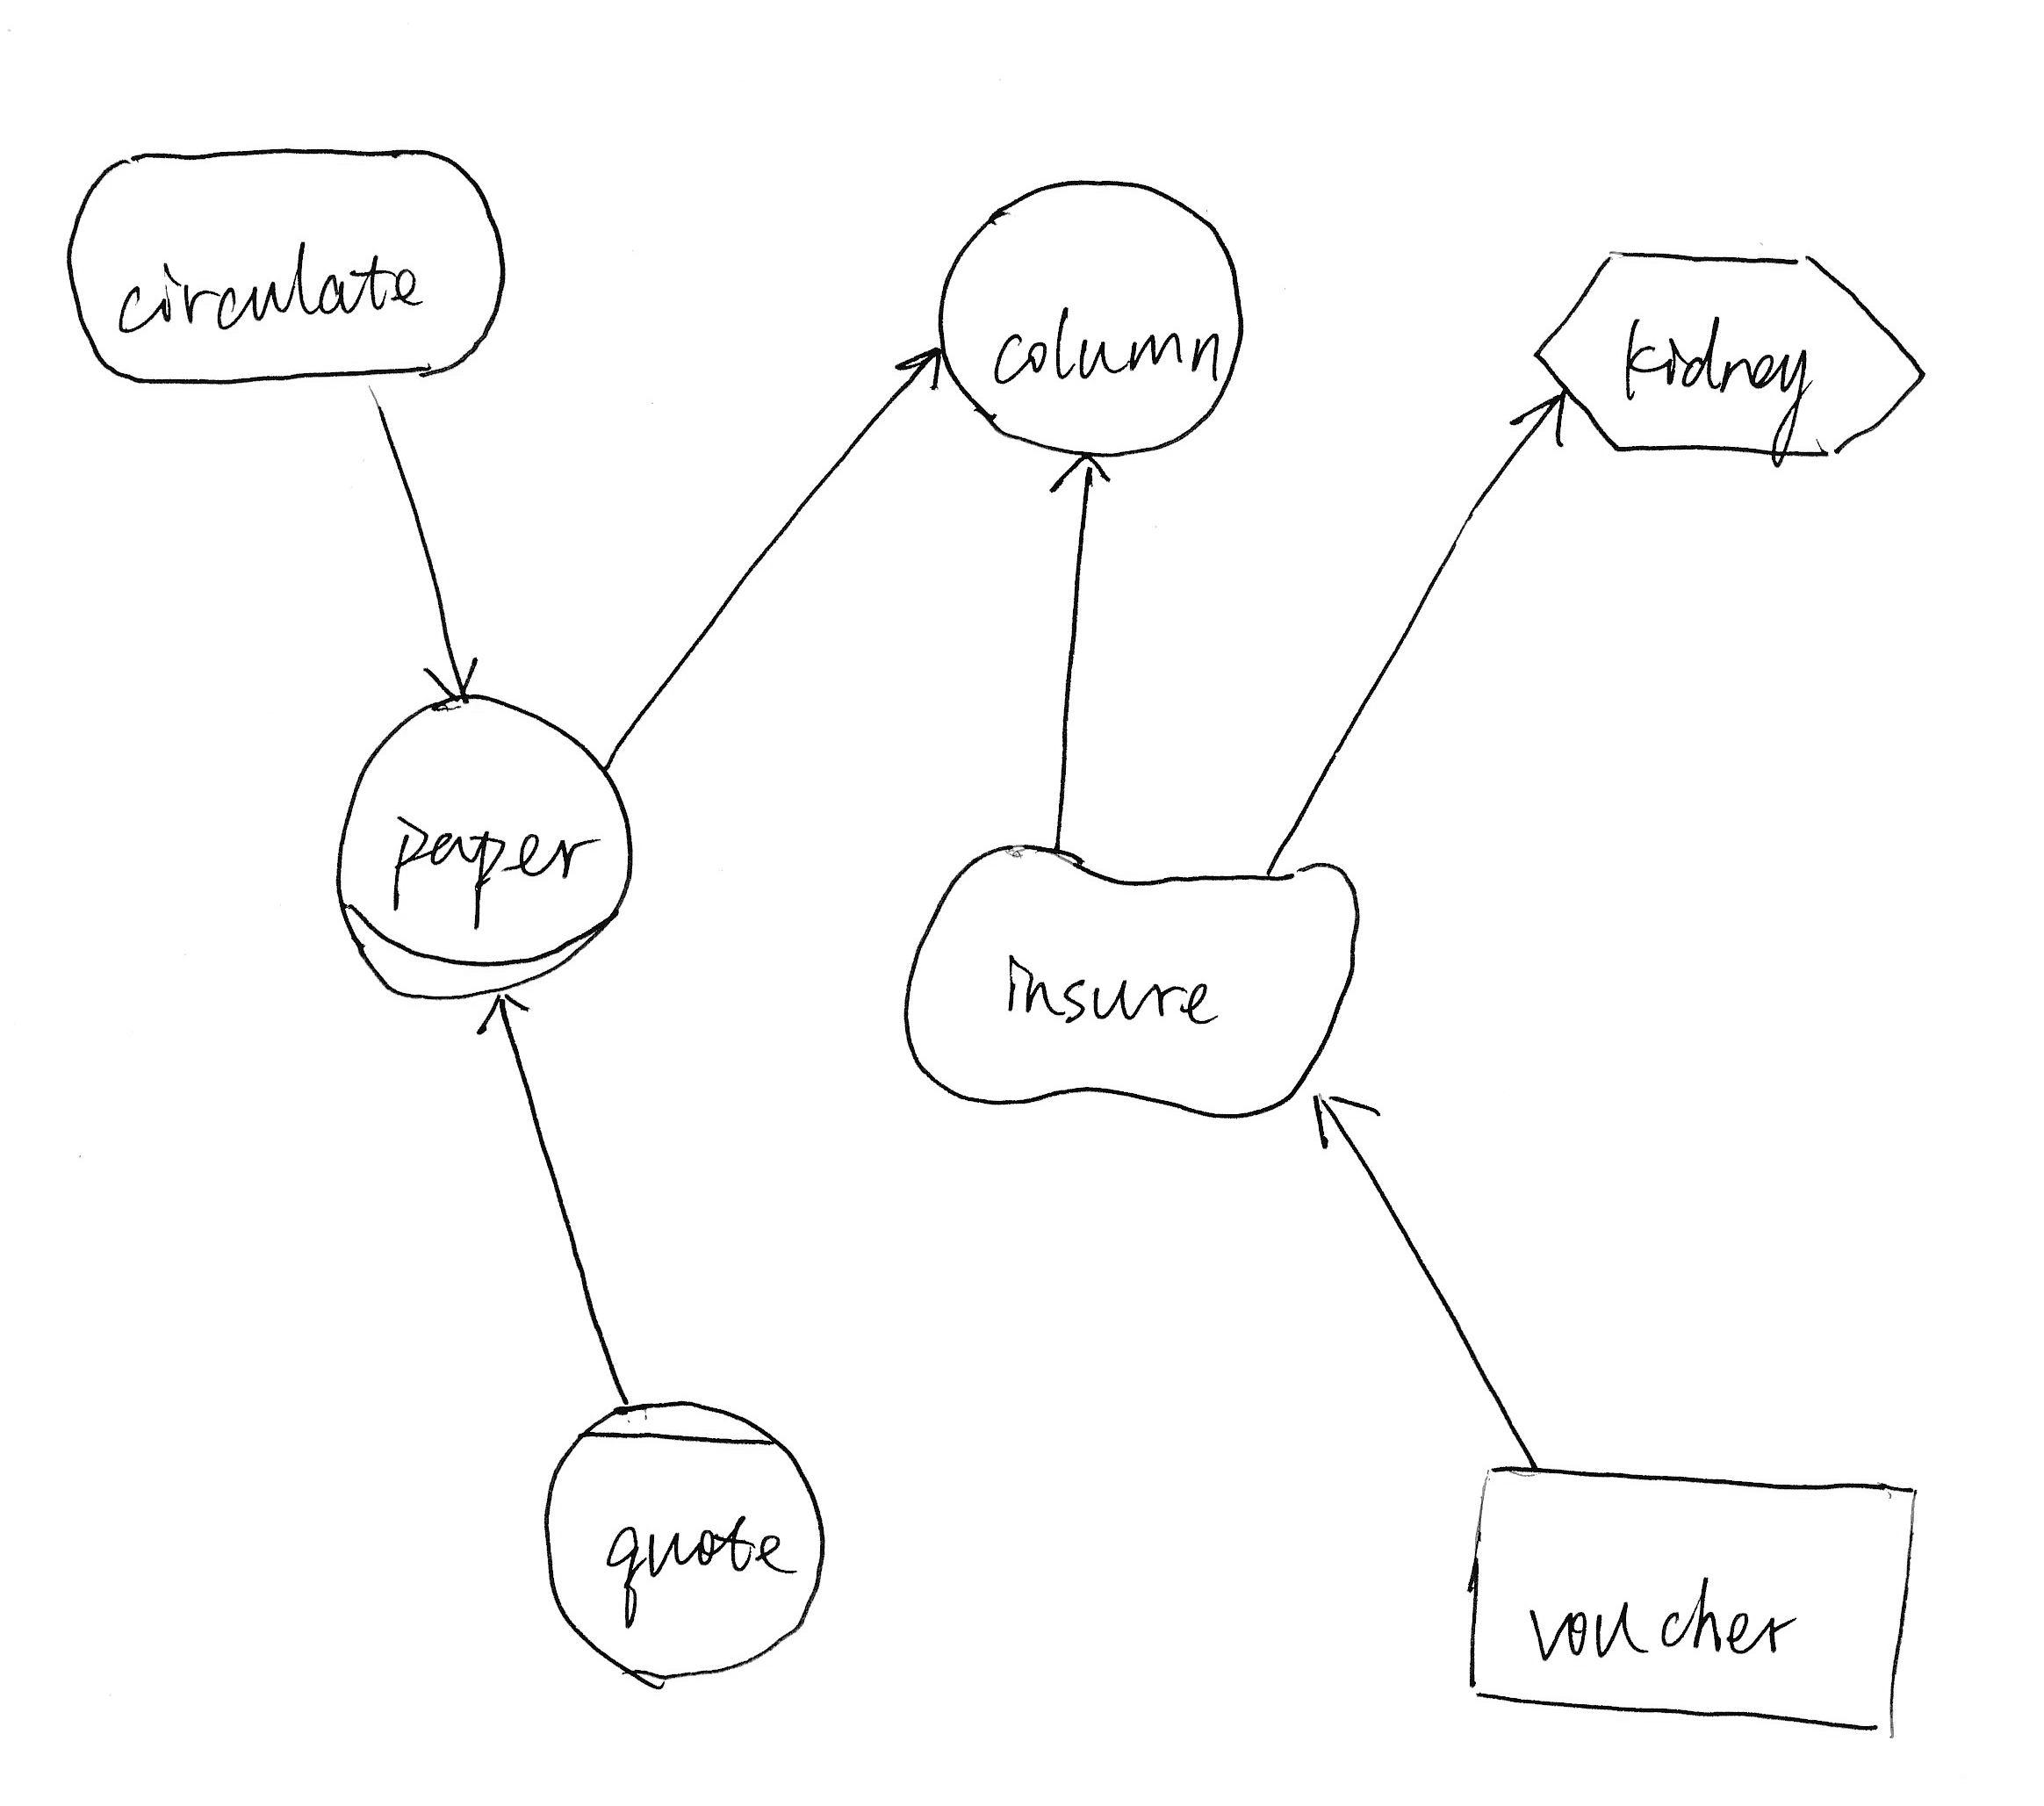 circulate
column
kidney
paper
insure
quote
voucher